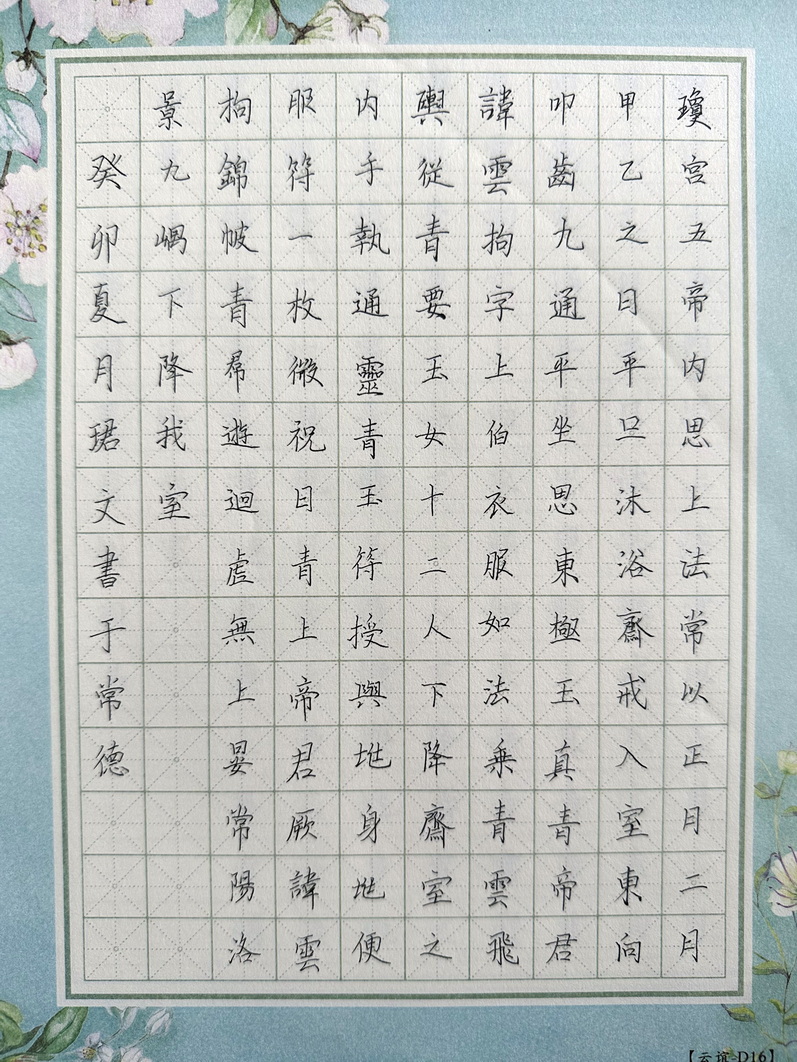 瓊宮五帝内思上法常以正月二月
甲乙之日平旦沐浴齋戒入室東向
叩齒九通平坐思東極玉真青帝君
諱雲拘字上伯衣服如法乗青雲飛
輿從青要玉女十二人下降齋室之
内手執通靈青玉符授與地身地便
服符一枚微祝曰青上帝君厥諱雲
拘錦帔青帬遊迴虚無上晏常陽洛
景九嵎下降我室
癸卯夏月珺文書于常德
【云谊-D16】